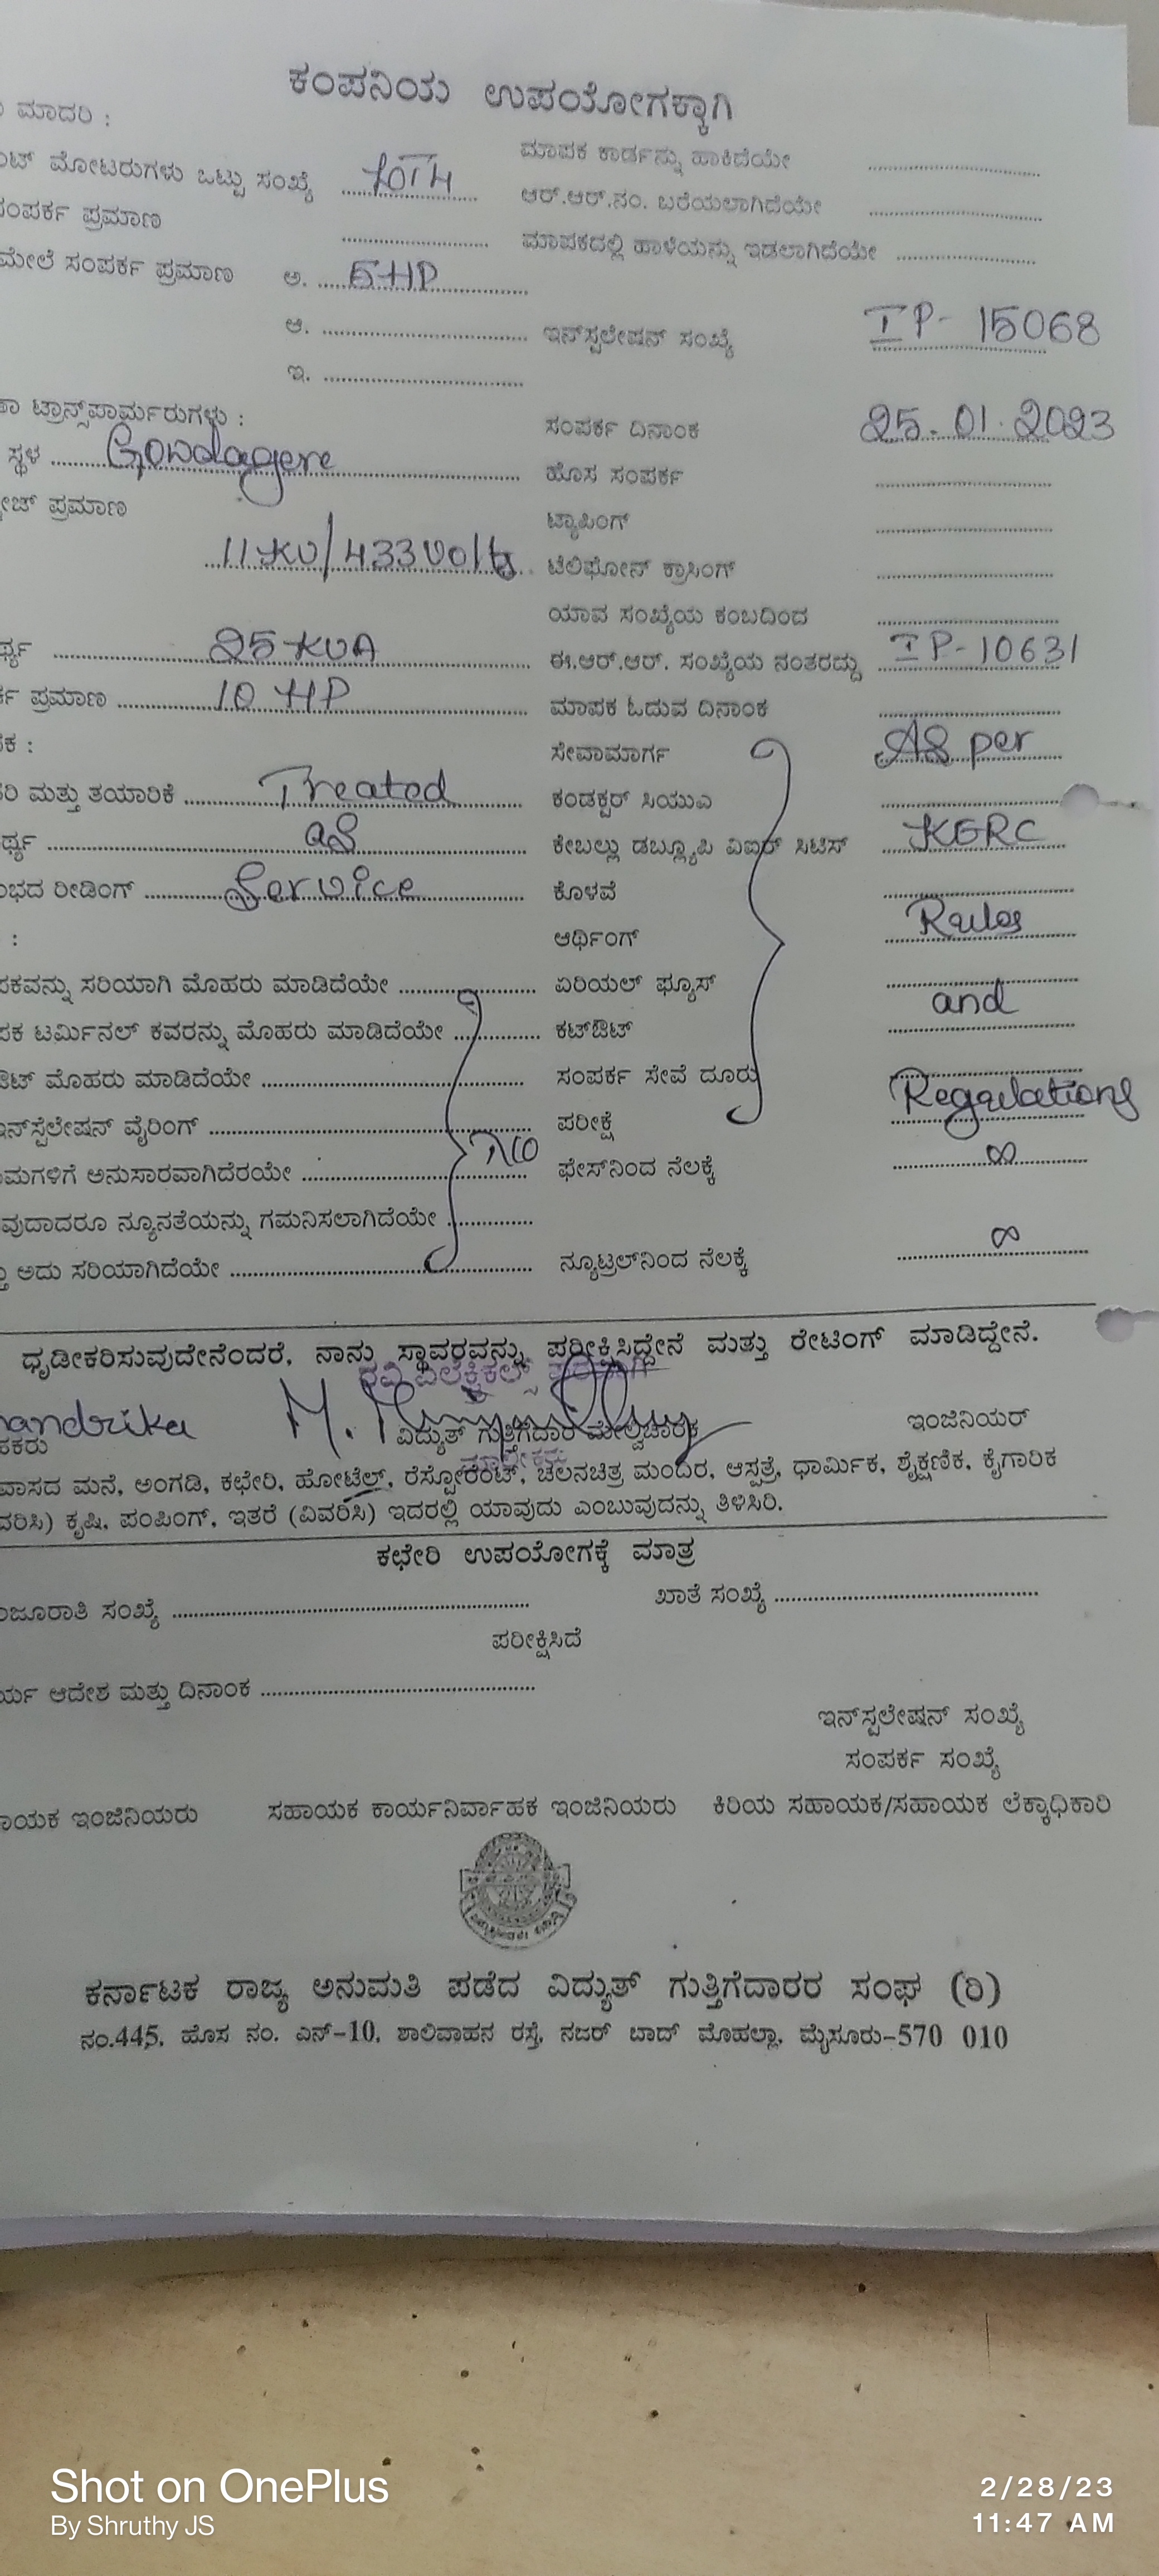 ಕಂಪನಿಯ ಉಪಯೋಗಕ್ಕಾಗಿ
ಮಾದರಿ :
ಮೋಟರುಗಳು ಒಟ್ಟು ಸಂಖ್ಯೆ ಮಾಪಕ ಕಾರ್ಡನ್ನು ಹಾಕಿದೆಯೇ
ಸಂಪರ್ಕ ಪ್ರಮಾಣ ಆರ್.ಆರ್.ನಂ. ಬರೆಯಲಾಗಿದೆಯೇ
ಮಾಪಕದಲ್ಲಿ ಹಾಳೆಯನ್ನು ಇಡಲಾಗಿದೆಯೇ
ಮೇಲೆ ಸಂಪರ್ಕ ಪ್ರಮಾಣ ಅ. 5 HP
ಆ. ಇನ್‌ಸ್ಟಲೇಷನ್ ಸಂಖ್ಯೆ IP- 15068
ಇ.
ಟ್ರಾನ್ಸ್‌ಪಾರ್ಮರುಗಳು : ಸಂಪರ್ಕ ದಿನಾಂಕ 25.01.2023
ಸ್ಥಳ Gondagere ಹೊಸ ಸಂಪರ್ಕ
ಪ್ರಮಾಣ ಟ್ಯಾಪಿಂಗ್
11 KV/433 Volts ಟೆಲಿಫೋನ್ ಕ್ರಾಸಿಂಗ್
ಯಾವ ಸಂಖ್ಯೆಯ ಕಂಬದಿಂದ
25 KVA ಈ.ಆರ್.ಆರ್. ಸಂಖ್ಯೆಯ ನಂತರದ್ದು IP-10631
ಪ್ರಮಾಣ 10 HP ಮಾಪಕ ಓದುವ ದಿನಾಂಕ
ಸೇವಾಮಾರ್ಗ As per
ಮತ್ತು ತಯಾರಿಕೆ Treated ಕಂಡಕ್ಟರ್ ಸಿಯುಎ
as ಕೇಬಲ್ಲು ಡಬ್ಲ್ಯೂಪಿ ವಿಐರ್ ಸಿಟಿಸ್ KERC
ರೀಡಿಂಗ್ Service ಕೊಳವೆ
: ಆರ್ಥಿಂಗ್ Rules
ಸರಿಯಾಗಿ ಮೊಹರು ಮಾಡಿದೆಯೇ ಏರಿಯಲ್ ಫ್ಯೂಸ್
ಟರ್ಮಿನಲ್ ಕವರನ್ನು ಮೊಹರು ಮಾಡಿದೆಯೇ ಕಟ್‌ಔಟ್ and
ಮೊಹರು ಮಾಡಿದೆಯೇ ಸಂಪರ್ಕ ಸೇವೆ ದೂರು
ಇನ್‌ಸ್ಟೆಲೇಷನ್ ವೈರಿಂಗ್ ಪರೀಕ್ಷೆ Regulations
ಅನುಸಾರವಾಗಿದೆರಯೇ ಫೇಸ್‌ನಿಂದ ನೆಲಕ್ಕೆ ∞
ನ್ಯೂನತೆಯನ್ನು ಗಮನಿಸಲಾಗಿದೆಯೇ
ಅದು ಸರಿಯಾಗಿದೆಯೇ ನ್ಯೂಟ್ರಲ್‌ನಿಂದ ನೆಲಕ್ಕೆ ∞
ಧೃಡೀಕರಿಸುವುದೇನೆಂದರೆ, ನಾನು ಸ್ಥಾವರವನ್ನು ಪರೀಕ್ಷಿಸಿದ್ದೇನೆ ಮತ್ತು ರೇಟಿಂಗ್ ಮಾಡಿದ್ದೇನೆ.
ವಿದ್ಯುತ್ ಗುತ್ತಿಗೆದಾರ ಮೇಲ್ವಿಚಾರಕ ಇಂಜಿನಿಯರ್
ಮನೆ, ಅಂಗಡಿ, ಕಛೇರಿ, ಹೋಟೆಲ್, ರೆಸ್ಟೋರೆಂಟ್, ಚಲನಚಿತ್ರ ಮಂದಿರ, ಆಸ್ಪತ್ರೆ, ಧಾರ್ಮಿಕ, ಶೈಕ್ಷಣಿಕ, ಕೈಗಾರಿಕ
ಕೃಷಿ, ಪಂಪಿಂಗ್, ಇತರೆ (ವಿವರಿಸಿ) ಇದರಲ್ಲಿ ಯಾವುದು ಎಂಬುವುದನ್ನು ತಿಳಿಸಿರಿ.
ಕಛೇರಿ ಉಪಯೋಗಕ್ಕೆ ಮಾತ್ರ
ಸಂಖ್ಯೆ ಖಾತೆ ಸಂಖ್ಯೆ
ಪರೀಕ್ಷಿಸಿದೆ
ಆದೇಶ ಮತ್ತು ದಿನಾಂಕ
ಇನ್‌ಸ್ಟಲೇಷನ್ ಸಂಖ್ಯೆ
ಸಂಪರ್ಕ ಸಂಖ್ಯೆ
ಇಂಜಿನಿಯರು ಸಹಾಯಕ ಕಾರ್ಯನಿರ್ವಾಹಕ ಇಂಜಿನಿಯರು ಕಿರಿಯ ಸಹಾಯಕ/ಸಹಾಯಕ ಲೆಕ್ಕಾಧಿಕಾರಿ
ಕರ್ನಾಟಕ ರಾಜ್ಯ ಅನುಮತಿ ಪಡೆದ ವಿದ್ಯುತ್ ಗುತ್ತಿಗೆದಾರರ ಸಂಘ (ರಿ)
ನಂ.445, ಹೊಸ ನಂ. ಎನ್-10, ಶಾಲಿವಾಹನ ರಸ್ತೆ, ನಜರ್ ಬಾದ್ ಮೊಹಲ್ಲಾ, ಮೈಸೂರು-570 010
Shot on OnePlus
By Shruthy JS
2/28/23
11:47 AM